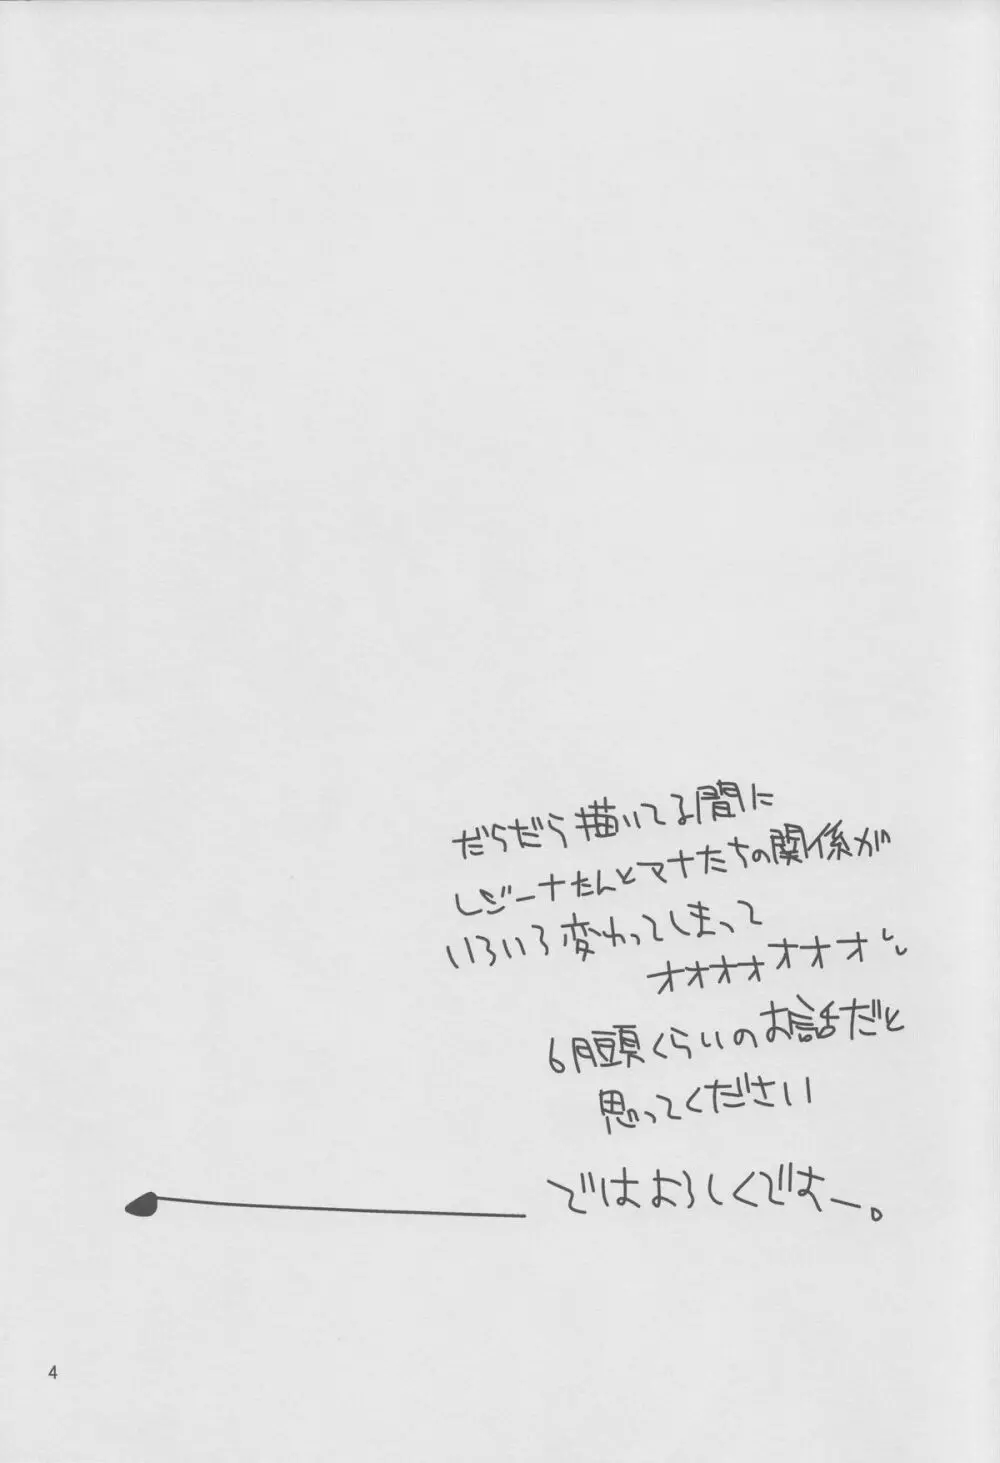 だらだら描いてる間に
レジーナたんとマナたちの関係が
いろいろ変わってしまって
オオオオオオオ
6月頭くらいのお話だと
思ってください
ではよろしくですー。
4